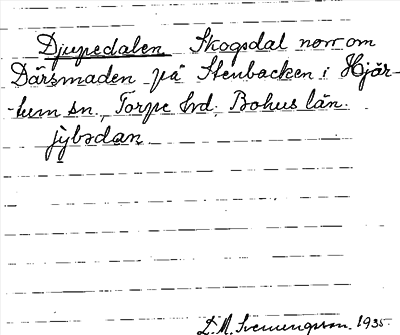 Djupedalen Skogsdal norr om
Därsmaden på Stenbacken i Hjär-
-tum sn., Torpe hd. Bohus län.
jỳbədan
D. M. Svenungsson. 1935.